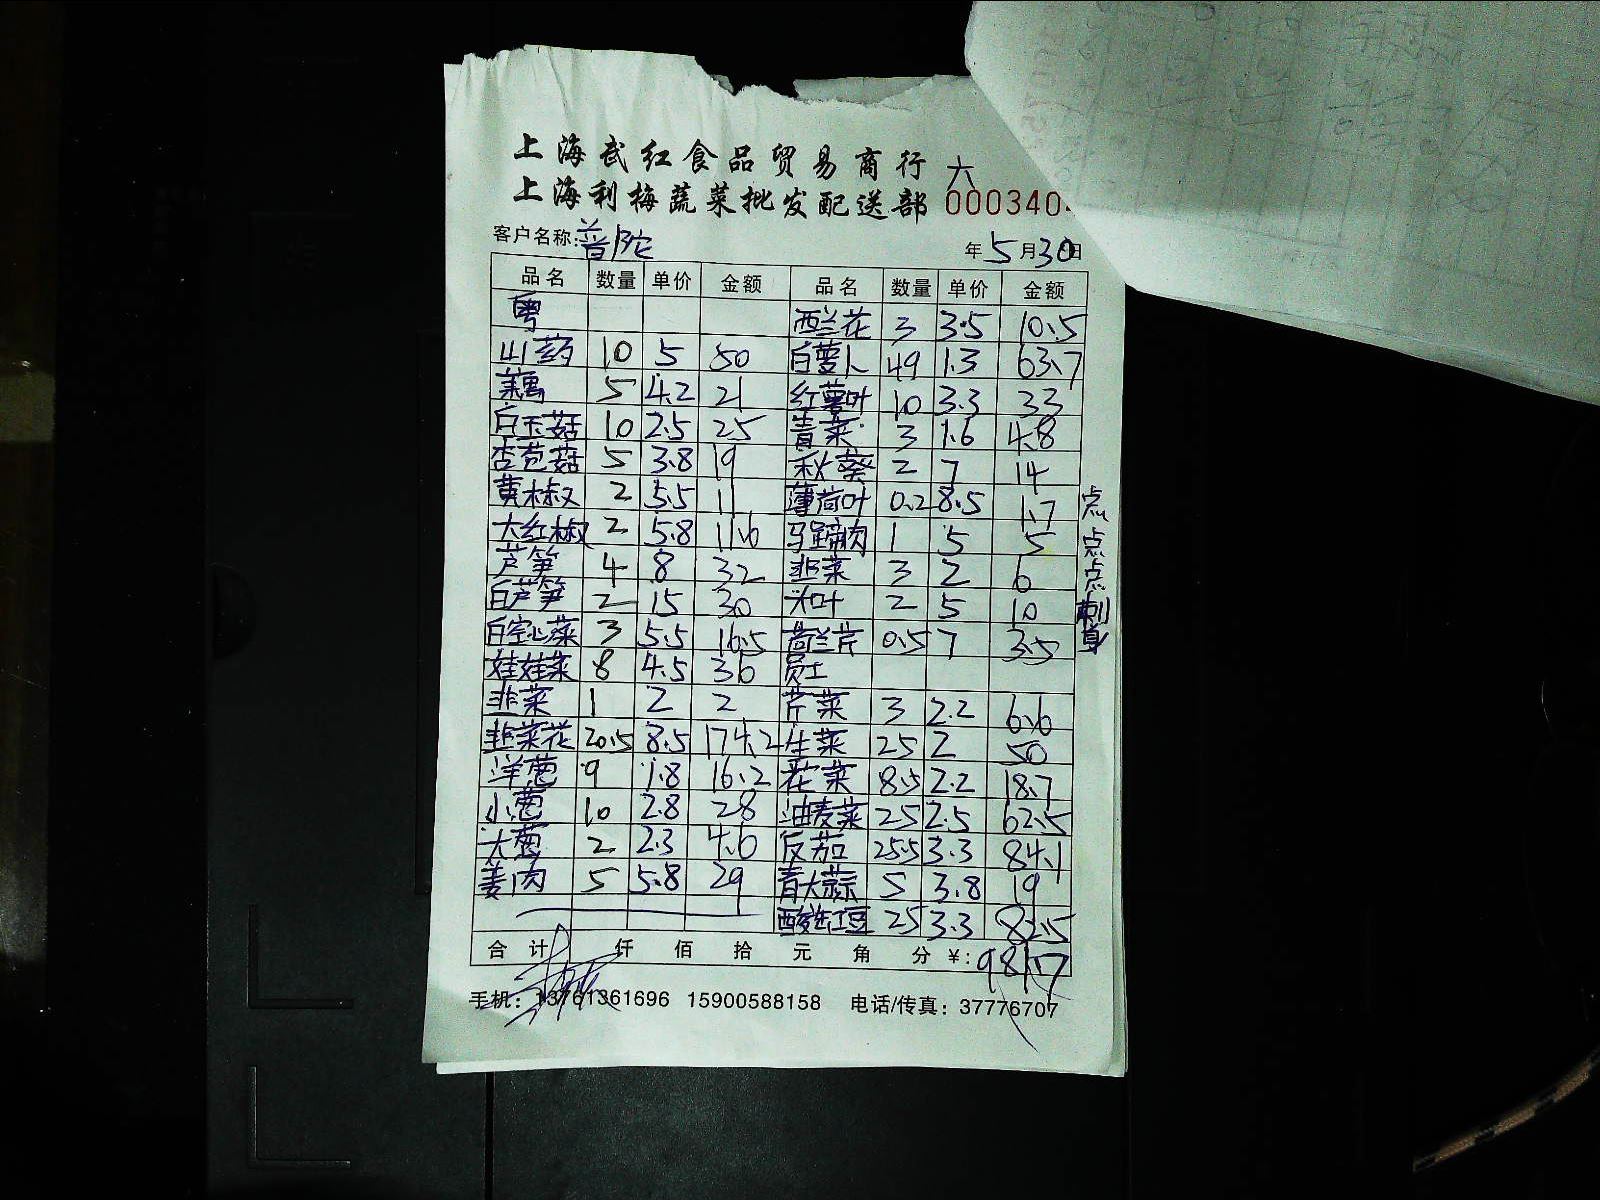 上海武红食品贸易商行 六
上海利梅蔬菜批发配送部 000340
客户名称:普陀 年5月30日
品名 数量 单价 金额 品名 数量 单价 金额
粤 西兰花 3 3.5 10.5
山药 10 5 50 白萝卜 49 1.3 63.7
藕 5 4.2 21 红薯叶 10 3.3 33
白玉菇 10 2.5 25 青菜 3 1.6 4.8
杏苞菇 5 3.8 19 秋葵 2 7 14
黄椒 2 5.5 11 薄荷叶 0.2 8.5 1.7 点
大红椒 2 5.8 11.6 马蹄肉 1 5 5 点
芦笋 4 8 32 韭菜 3 2 6 点
白芦笋 2 15 30 大叶 2 5 10 刺身
白空心菜 3 5.5 16.5 荷兰芹 0.5 7 3.5
娃娃菜 8 4.5 36 员工
韭菜 1 2 2 芹菜 3 2.2 6.6
韭菜花 20.5 8.5 174.2 生菜 25 2 50
洋葱 9 1.8 16.2 花菜 8.5 2.2 18.7
小葱 10 2.8 28 油麦菜 25 2.5 62.5
大葱 2 2.3 4.6 反茄 25.5 3.3 84.1
姜肉 5 5.8 29 青大蒜 5 3.8 19
酸豇豆 25 3.3 82.5
合计 仟 佰 拾 元 角 分 ¥:981.7
手机：13761361696 15900588158 电话/传真：37776707